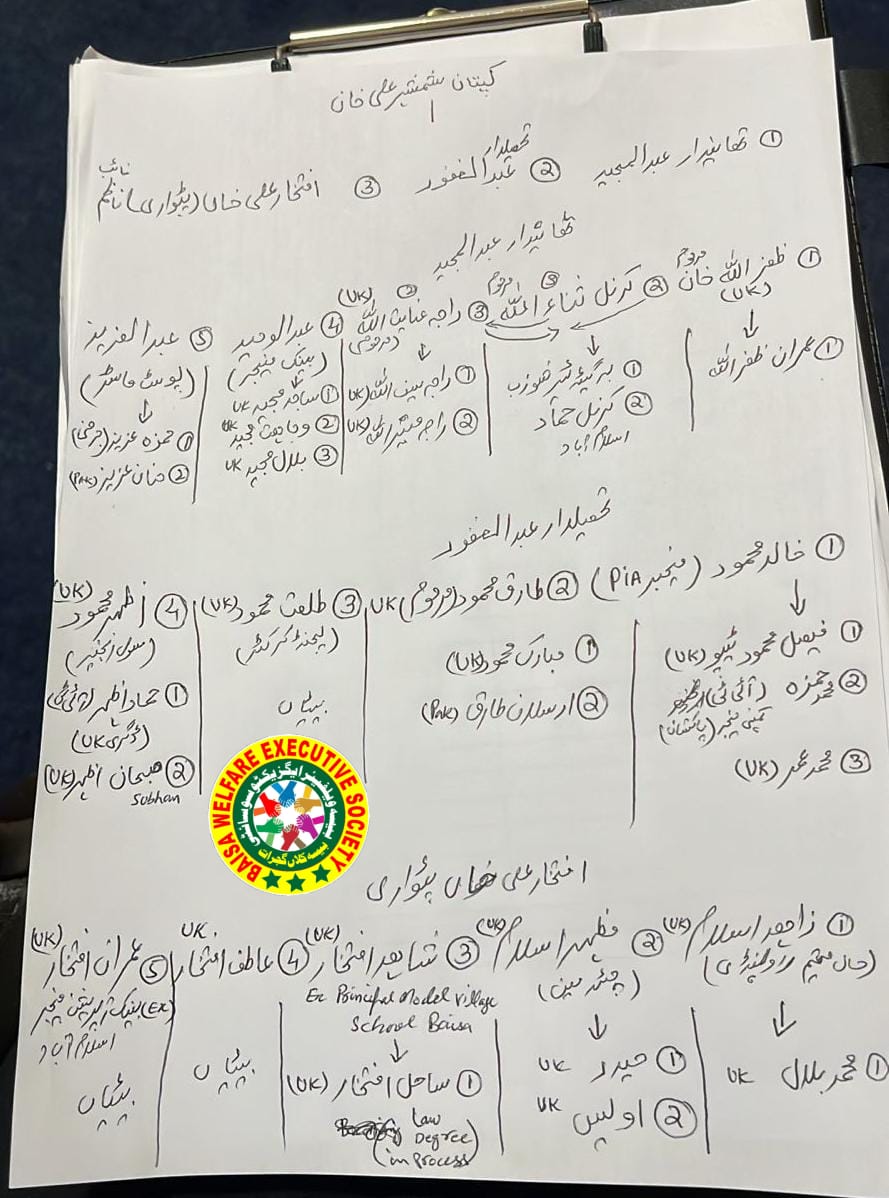 کپتان شمشیر علی خان
① تھانیدار عبدالمجید ② تحصیلدار عبدالغفور ③ افتخار علی خان (پٹواری) نائب ناظم
تھانیدار عبدالمجید
① ظفر اللہ خان مرحوم (UK) ② کرنل ثناء اللہ مرحوم ③ راجہ عنایت اللہ (UK) (مرحوم) ④ عبدالوحید (بینک منیجر) ⑤ عبدالعزیز (پوسٹ ماسٹر)
① عمران ظفر اللہ
① بریگیڈئر
② کرنل حماد
اسلام آباد
① راجہ سیف اللہ (UK)
② راجہ (UK)
① ساجد مجید UK
② وجاہت مجید UK
③ بلال مجید UK
① حمزہ عزیز (جرمنی)
② حنان عزیز (PAK)
تحصیلدار عبدالغفور
① خالد محمود (منیجر PiA) ② طارق محمود (مرحوم) UK ③ طلعت محمود (UK) (لیجنڈ کرکٹر) ④ اظہر محمود (UK) (سول انجنیر)
① فیصل محمود ٹیپو (UK)
② محمد حمزہ (آئی ٹی)
کمپنی منیجر (پاکستان)
③ محمد عمر (UK)
① مبارک محمود (UK)
② ارسلان طارق (Pak)
بیٹیاں
① حماد اظہر (آئی ٹی)
(ڈگری UK)
② صبحان اظہر (UK)
Subhan
BAISA WELFARE EXECUTIVE SOCIETY
بیسہ ویلفیئر ایگزیکٹو سوسائٹی
بیسہ کلاں گجرات
افتخار علی خاں پٹواری
① زاہد اسلام (UK) (حال مقیم راولپنڈی) ② مظہر اسلام (UK) (چئرمین) ③ شاہد افتخار (UK) ④ عاطف افتخار UK. ⑤ عمران افتخار (UK)
Ex Principal Model village
School Baisa
(Ex) بینک آپریشن منیجر
اسلام آباد
① محمد بلال UK
① حیدر UK
② اویس UK
① ساحل افتخار (UK)
Law
Degree
(in process)
بیٹیاں
بیٹیاں